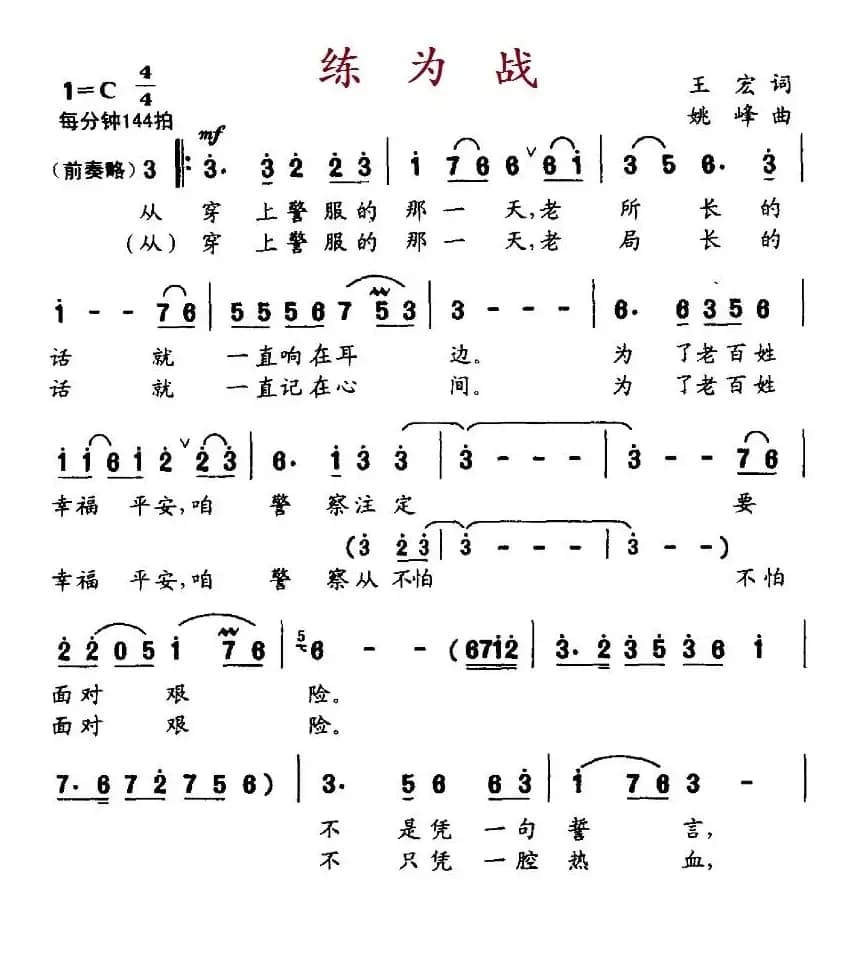 练为战
1=C 4/4
王宏词
每分钟144拍
姚峰曲
mf
(前奏略) 3 ‖: 3̇. 3̇ 2̇ 2̇ 3̇ | 1̇ 7 6 6 ∨ 6 1̇ | 3 5 6. 3̇ |
从穿上警服的那一天,老所长的
(从)穿上警服的那一天,老局长的
1̇ - - 7 6 | 5 5 5 6 7 5 3 | 3 - - - | 6. 6 3 5 6 |
话就一直响在耳边。为了老百姓
话就一直记在心间。为了老百姓
1̇ 1̇ 6 1̇ 2̇ ∨ 2̇ 3̇ | 6. 1̇ 3̇ 3̇ | 3̇ - - - | 3̇ - - 7 6 |
幸福平安,咱警察注定要
(3̇ 2̇ 3̇ | 3̇ - - - | 3̇ - -)
幸福平安,咱警察从不怕不怕
2̇ 2̇ 0 5 1̇ 7 6 | 5 6 - - (6 7 1̇ 2̇ | 3̇. 2̇ 3̇ 5̇ 3̇ 6 1̇ |
面对艰险。
面对艰险。
7. 6 7 2̇ 7 5 6) | 3. 5 6 6 3̇ | 1̇ 7 6 3 - |
不是凭一句誓言,
不只凭一腔热血,